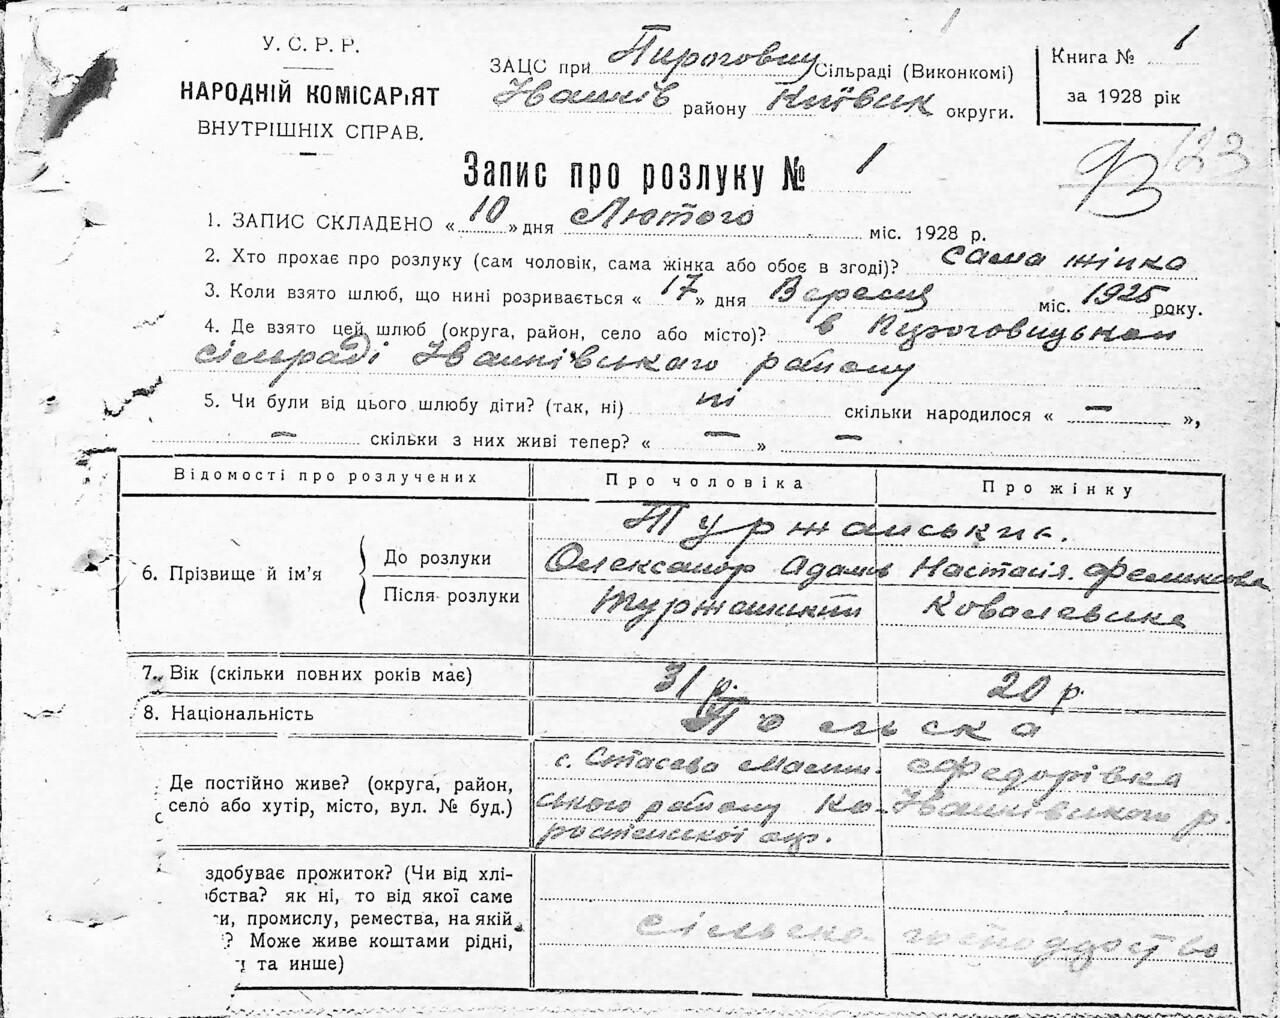 У. С. Р. Р.
НАРОДНІЙ КОМІСАРІЯТ
ВНУТРІШНІХ СПРАВ.
ЗАЦС при Пироговиц Сільраді (Виконкомі)
Іванків району Київск округи.
Книга № 1
за 1928 рік
123
93
Запис про розлуку № 1
1. ЗАПИС СКЛАДЕНО « 10 » дня Лютого міс. 1928 р.
2. Хто прохає про розлуку (сам чоловік, сама жінка або обоє в згоді)? сама жінка
3. Коли взято шлюб, що нині розривається « 17 » дня Вересня міс. 1925 року.
4. Де взято цей шлюб (округа, район, село або місто)? в Пироговицькой
сільраді Іванківського району
5. Чи були від цього шлюбу діти? (так, ні) ні скільки народилося « — »,
— скільки з них живі тепер? « — » —
Відомості про розлучених Про чоловіка Про жінку
6. Прізвище й ім'я
До розлуки
Туржанський.
Олександр Адамів Настасія
Після розлуки Туржанский Ковалевська
7. Вік (скільки повних років має) 31 р. 20 р.
8. Національність Польска
Де постійно живе? (округа, район,
село або хутір, місто, вул. № буд.)
с. Стасева Малин-
ського району Ко-
ростенської окр.
Федорівка
Іванківського р.
здобуває прожиток? (Чи від хлі-
бства? як ні, то від якої саме
и, промислу, ремества, на якій
? Може живе коштами рідні,
та инше)
сільско-господарство